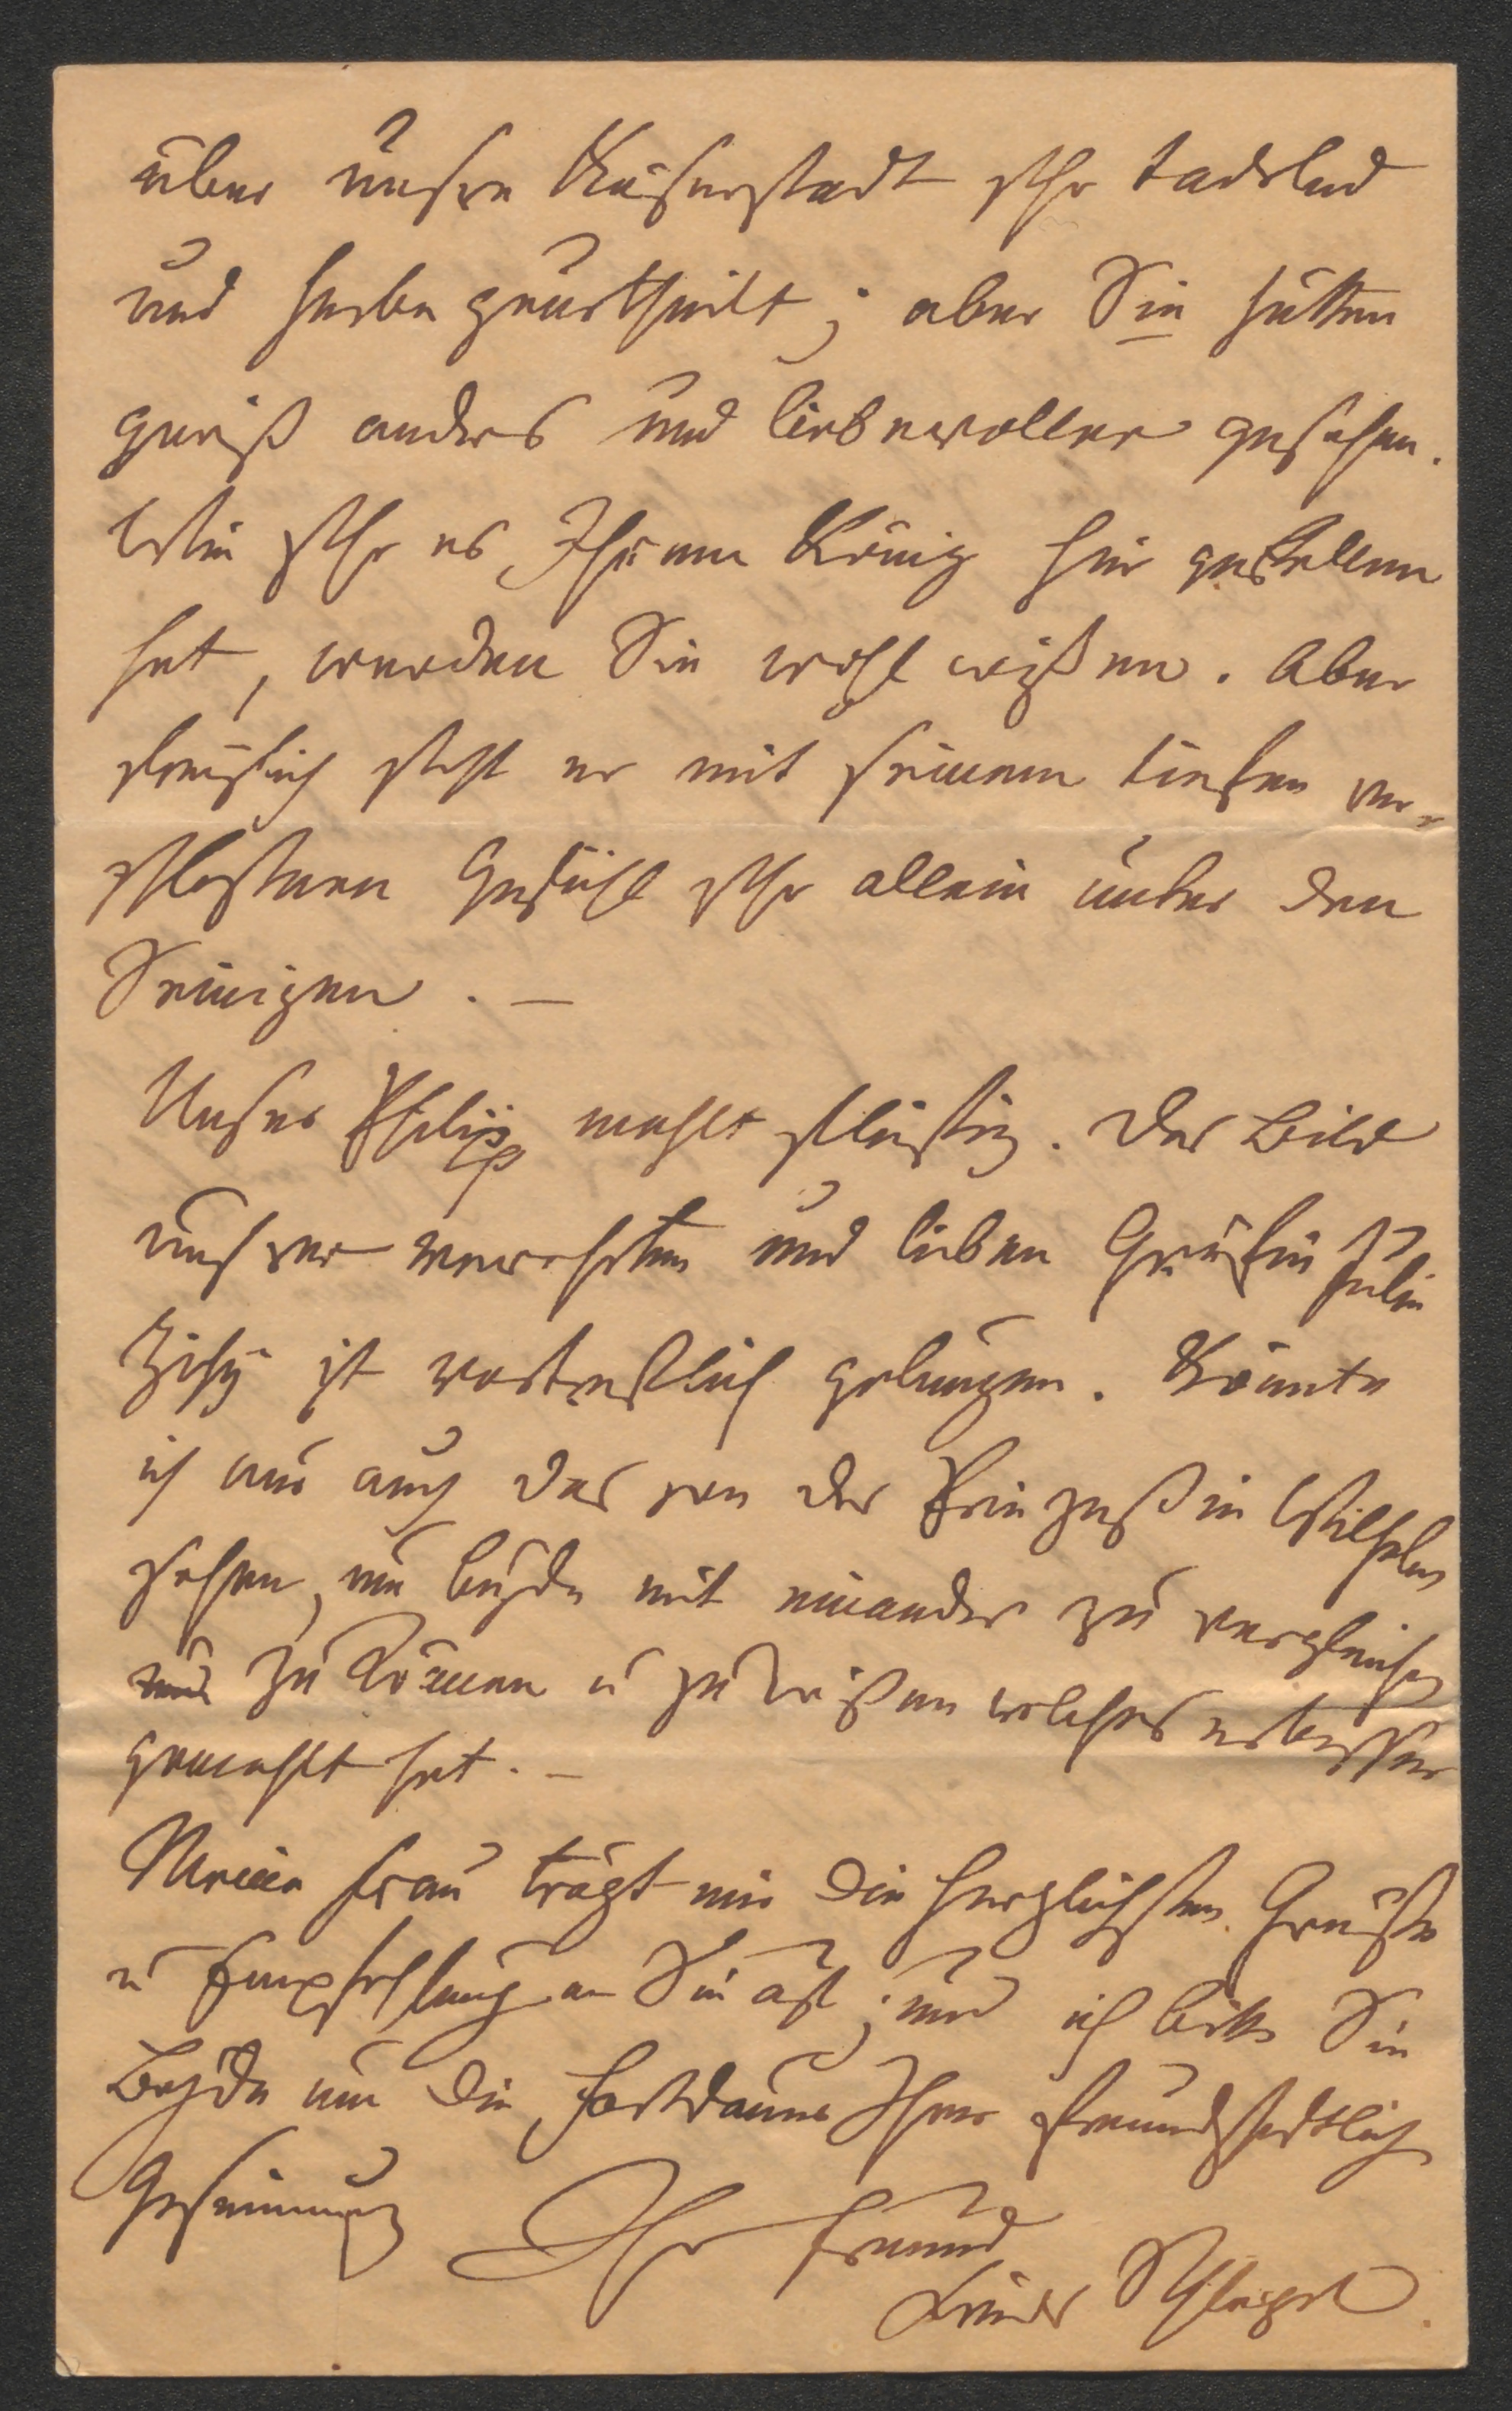 über unsre Kaiserstadt sehr tadelnd
und herbe geurtheilt; aber Sie hätten
gewiß anders und liebevoller gesehen.
Wie sehr es Ihrem König hier gefallen
hat, werden Sie wohl wißen. Aber
freylich steht er mit seinem tiefen ver-
schloßnen Gefühl sehr allein unter den
Seinigen. —
Unser Philipp mahlt fleißig. Das Bild
unsrer verehrten und lieben Gräfin Julie
Zichy ist vortreflich gelungen. Könnte
ich nur auch das von der Prinzeßin Wilhelm
sehen, um beyde mit einander zu vergleichen
zu können u zu wißen welches er besser
gemahlt hat. —
Meine Frau trägt mir die herzlichsten Grüße
u Empfehlung an Sie auf; und ich bitte Sie
Beyde um die Fortdauer Ihrer freundschaftlich
Gesinnung
Ihr Freund
Friedr Schlegel.